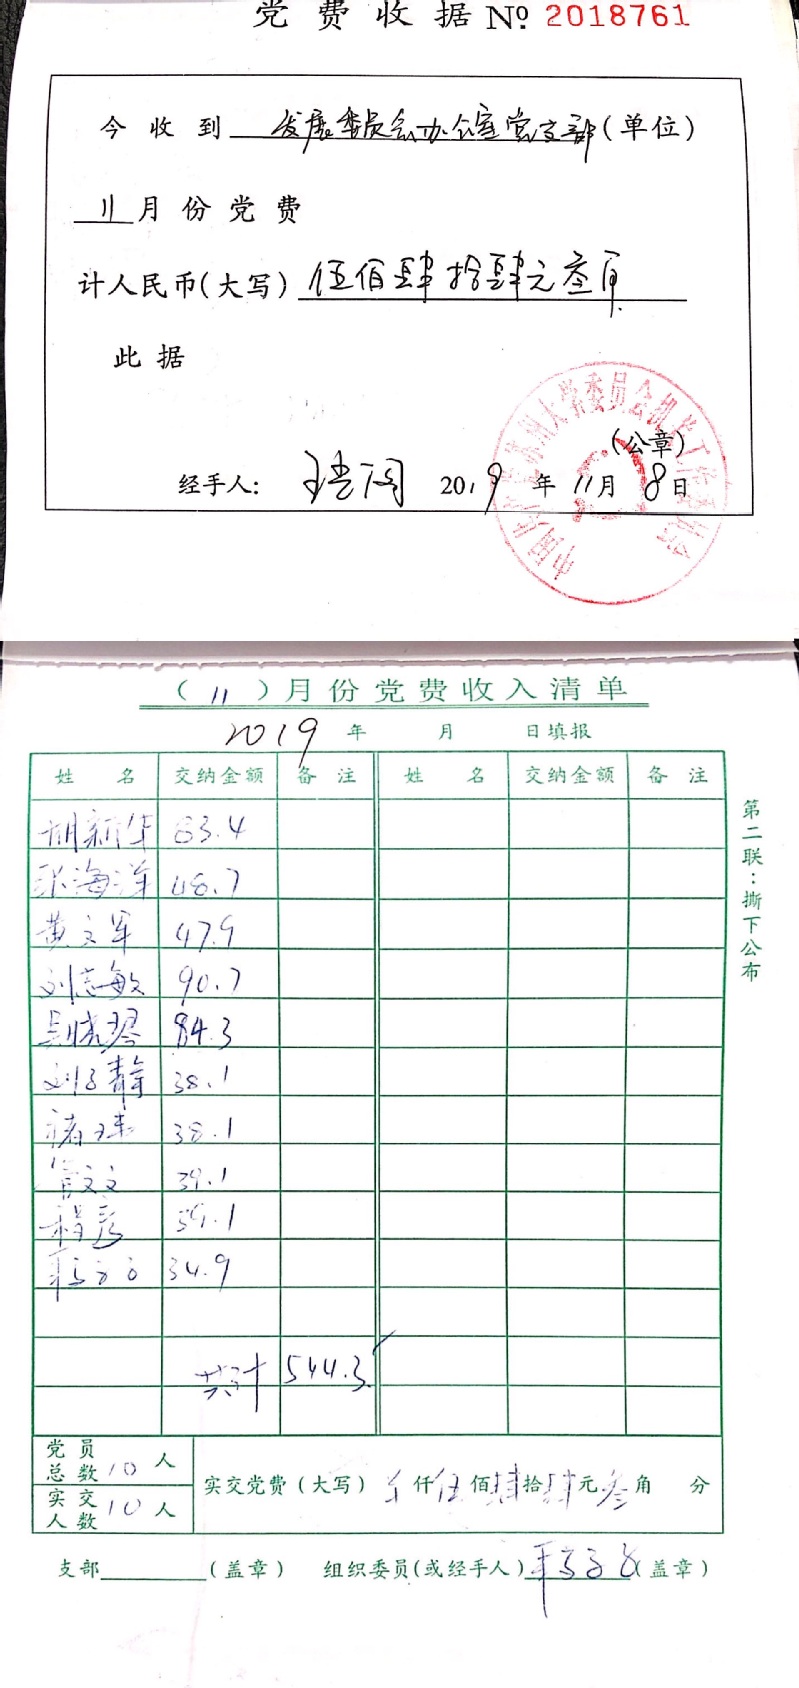 党费收据 № 2018761
今收到 发展委员会办公室党支部(单位)
11月份党费
计人民币(大写) 伍佰肆拾肆元叁角
此据
(公章)
经手人: 2019年11月8日
(11)月份党费收入清单
2019年 月 日填报
姓名 交纳金额 备注 姓名 交纳金额 备注
胡新华 83.4
张海洋 48.7
黄文军 47.9
刘志敏 90.7
吴晓琴 84.3
刘子静 38.1
褚玮 38.1
管文文 39.1
程彦 39.1
34.9
共计 544.3
党员总数 10人
实交人数 10人
实交党费(大写) 仟伍佰肆拾肆元叁角 分
支部 (盖章) 组织委员(或经手人) (盖章)
第二联:撕下公布